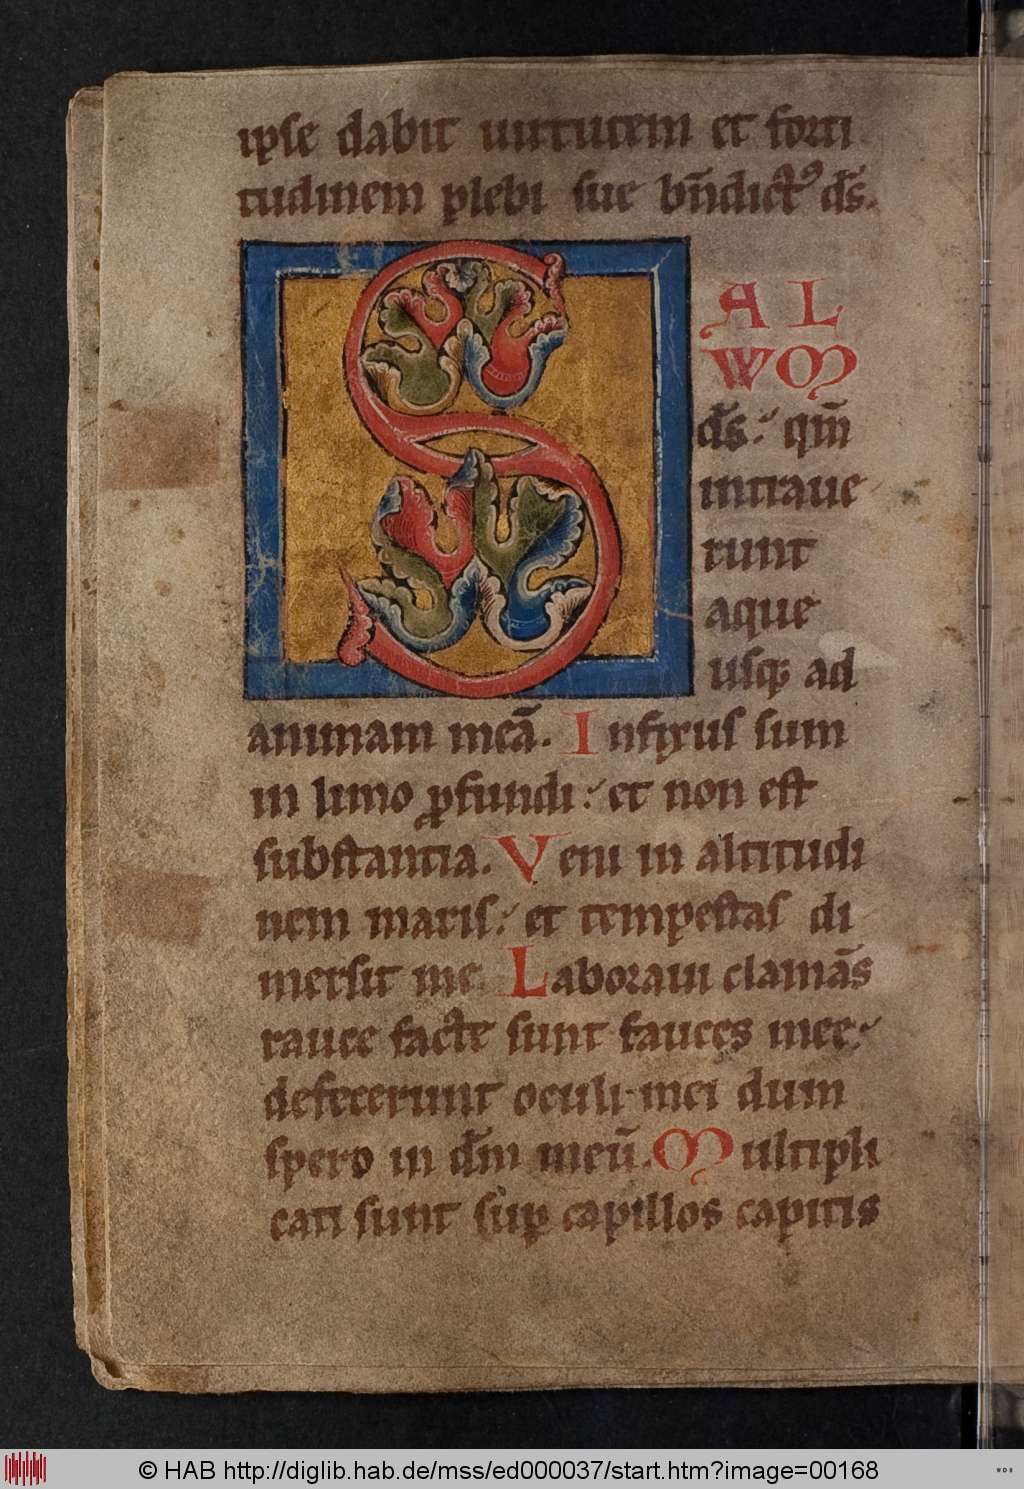 ipse dabit uirtutem et forti
tudinem plebi sue bn̄dictꝰ ds̄.
SAL
WM
ds̄: qm̄
intraue
runt
aque
usqꝫ ad
animam meā. Infixus sum
in limo ꝓfundi: et non est
substantia. Veni in altitudi
nem maris: et tempestas di
mersit me. Laboraui clamās
rauce facte sunt fauces mee:
defecerunt oculi mei dum
spero in dm̄ meū. Multipli
cati sunt suꝑ capillos capitis
© HAB http://diglib.hab.de/mss/ed000037/start.htm?image=00168